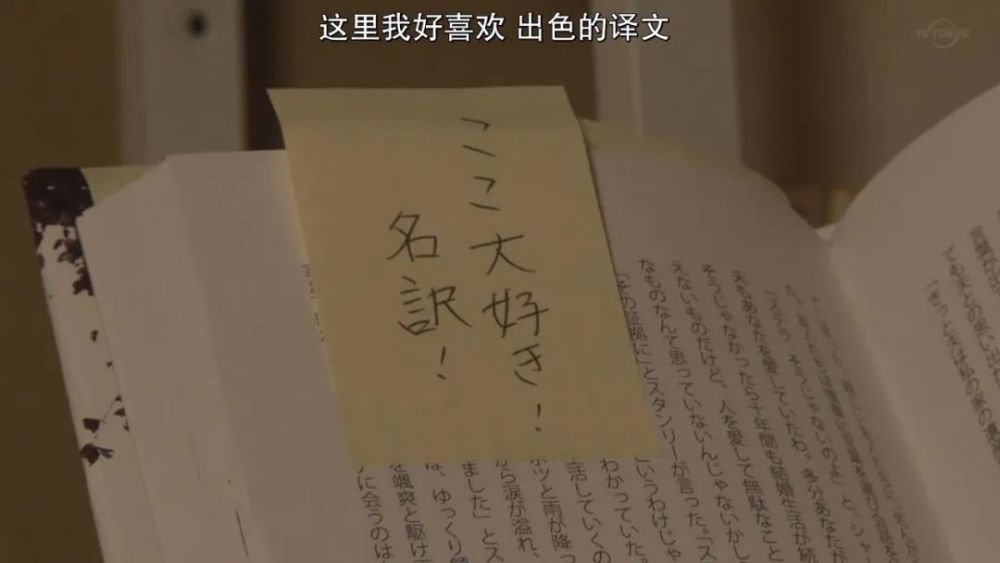 这里我好喜欢 出色的译文
TV TOKYO
ここ大好き!
名訳!
ても夫との思い出
「きっと夫は私の家の
「ステラ、そうじゃないのよ」と、シャー
夫もあなたを愛していたわ。多分あなたが
そうじゃなかったら十年間も結婚生活が続
えないものだけど、人を愛して無駄なこと
なものなんて思っていないんじゃないかし
「その証拠に」とスタンリーが言った。「ス
というわけじゃ
わかっていた。
活していくの
ポツと雨が降っ
ら涙が溢れ、
ました」とス
は、ゆっくり
を颯爽と駆け
に会うのは